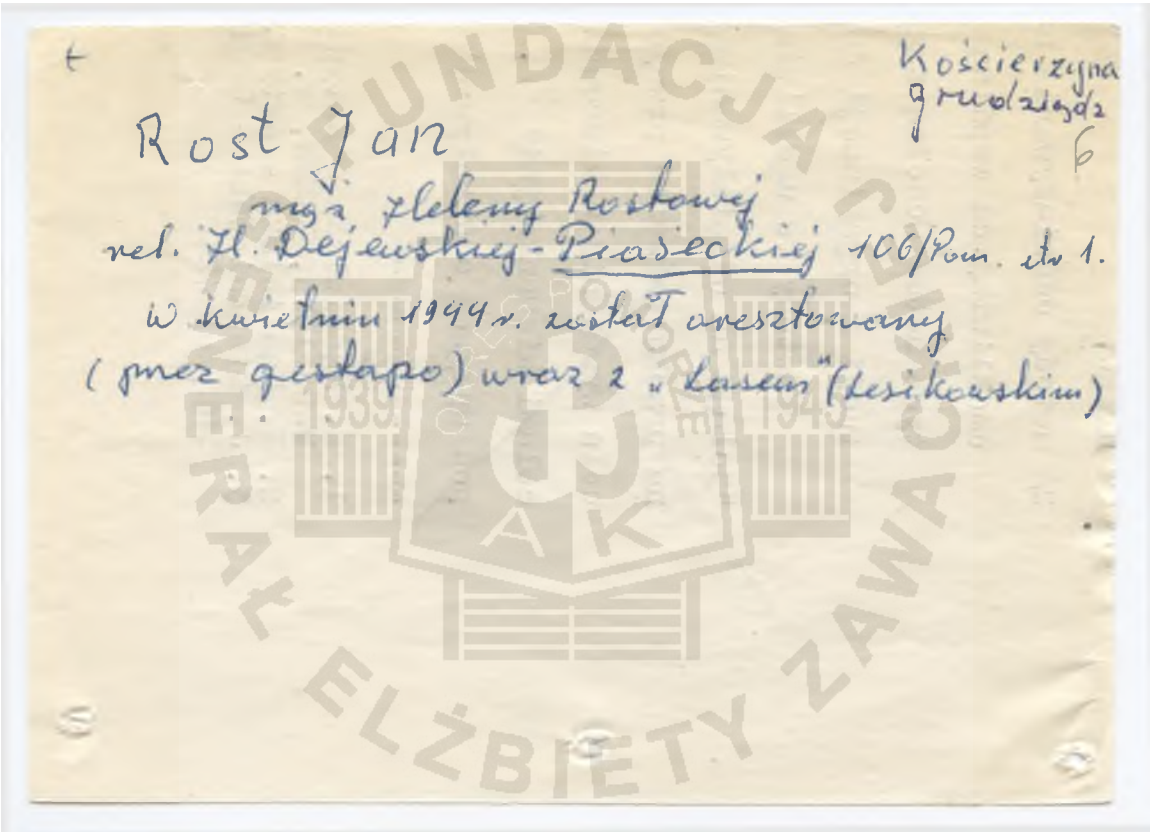 t
Kościerzyna
Grudziądz
6
Rost Jan
mąż Heleny Rostowej
rel. H. Dejewskiej-Piaseckiej 106/Pom. str 1.
W kwietniu 1944 r. został aresztowany
(przez gestapo) wraz z „Lasem" (Lesikowskim)
FUNDACJA GENERAŁ ELŻBIETY ZAWACKIEJ
OKRĘG POMORZE
1939 1945
AK